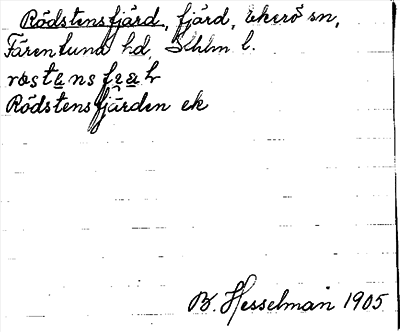 Rödstensfjärd, fjärd, Ekerö sn,
Färentuna hd, Sthlm l.
Rödstensfjärden ek
B. Hesselman 1905